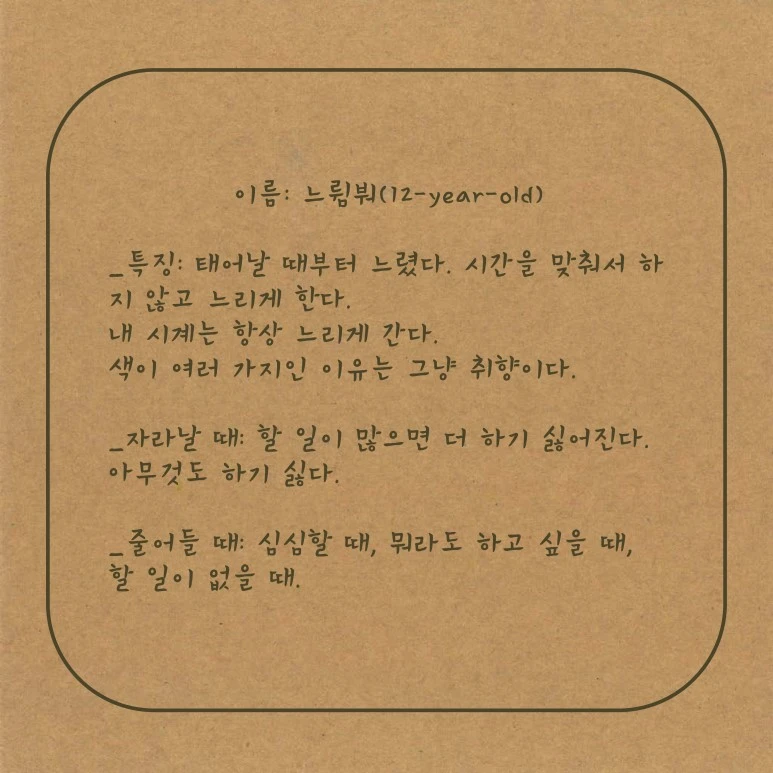 이름: 느림붜(12-year-old)
_특징: 태어날 때부터 느렸다. 시간을 맞춰서 하
지 않고 느리게 한다.
내 시계는 항상 느리게 간다.
색이 여러 가지인 이유는 그냥 취향이다.
_자라날 때: 할 일이 많으면 더 하기 싫어진다.
아무것도 하기 싫다.
_줄어들 때: 심심할 때, 뭐라도 하고 싶을 때,
할 일이 없을 때.